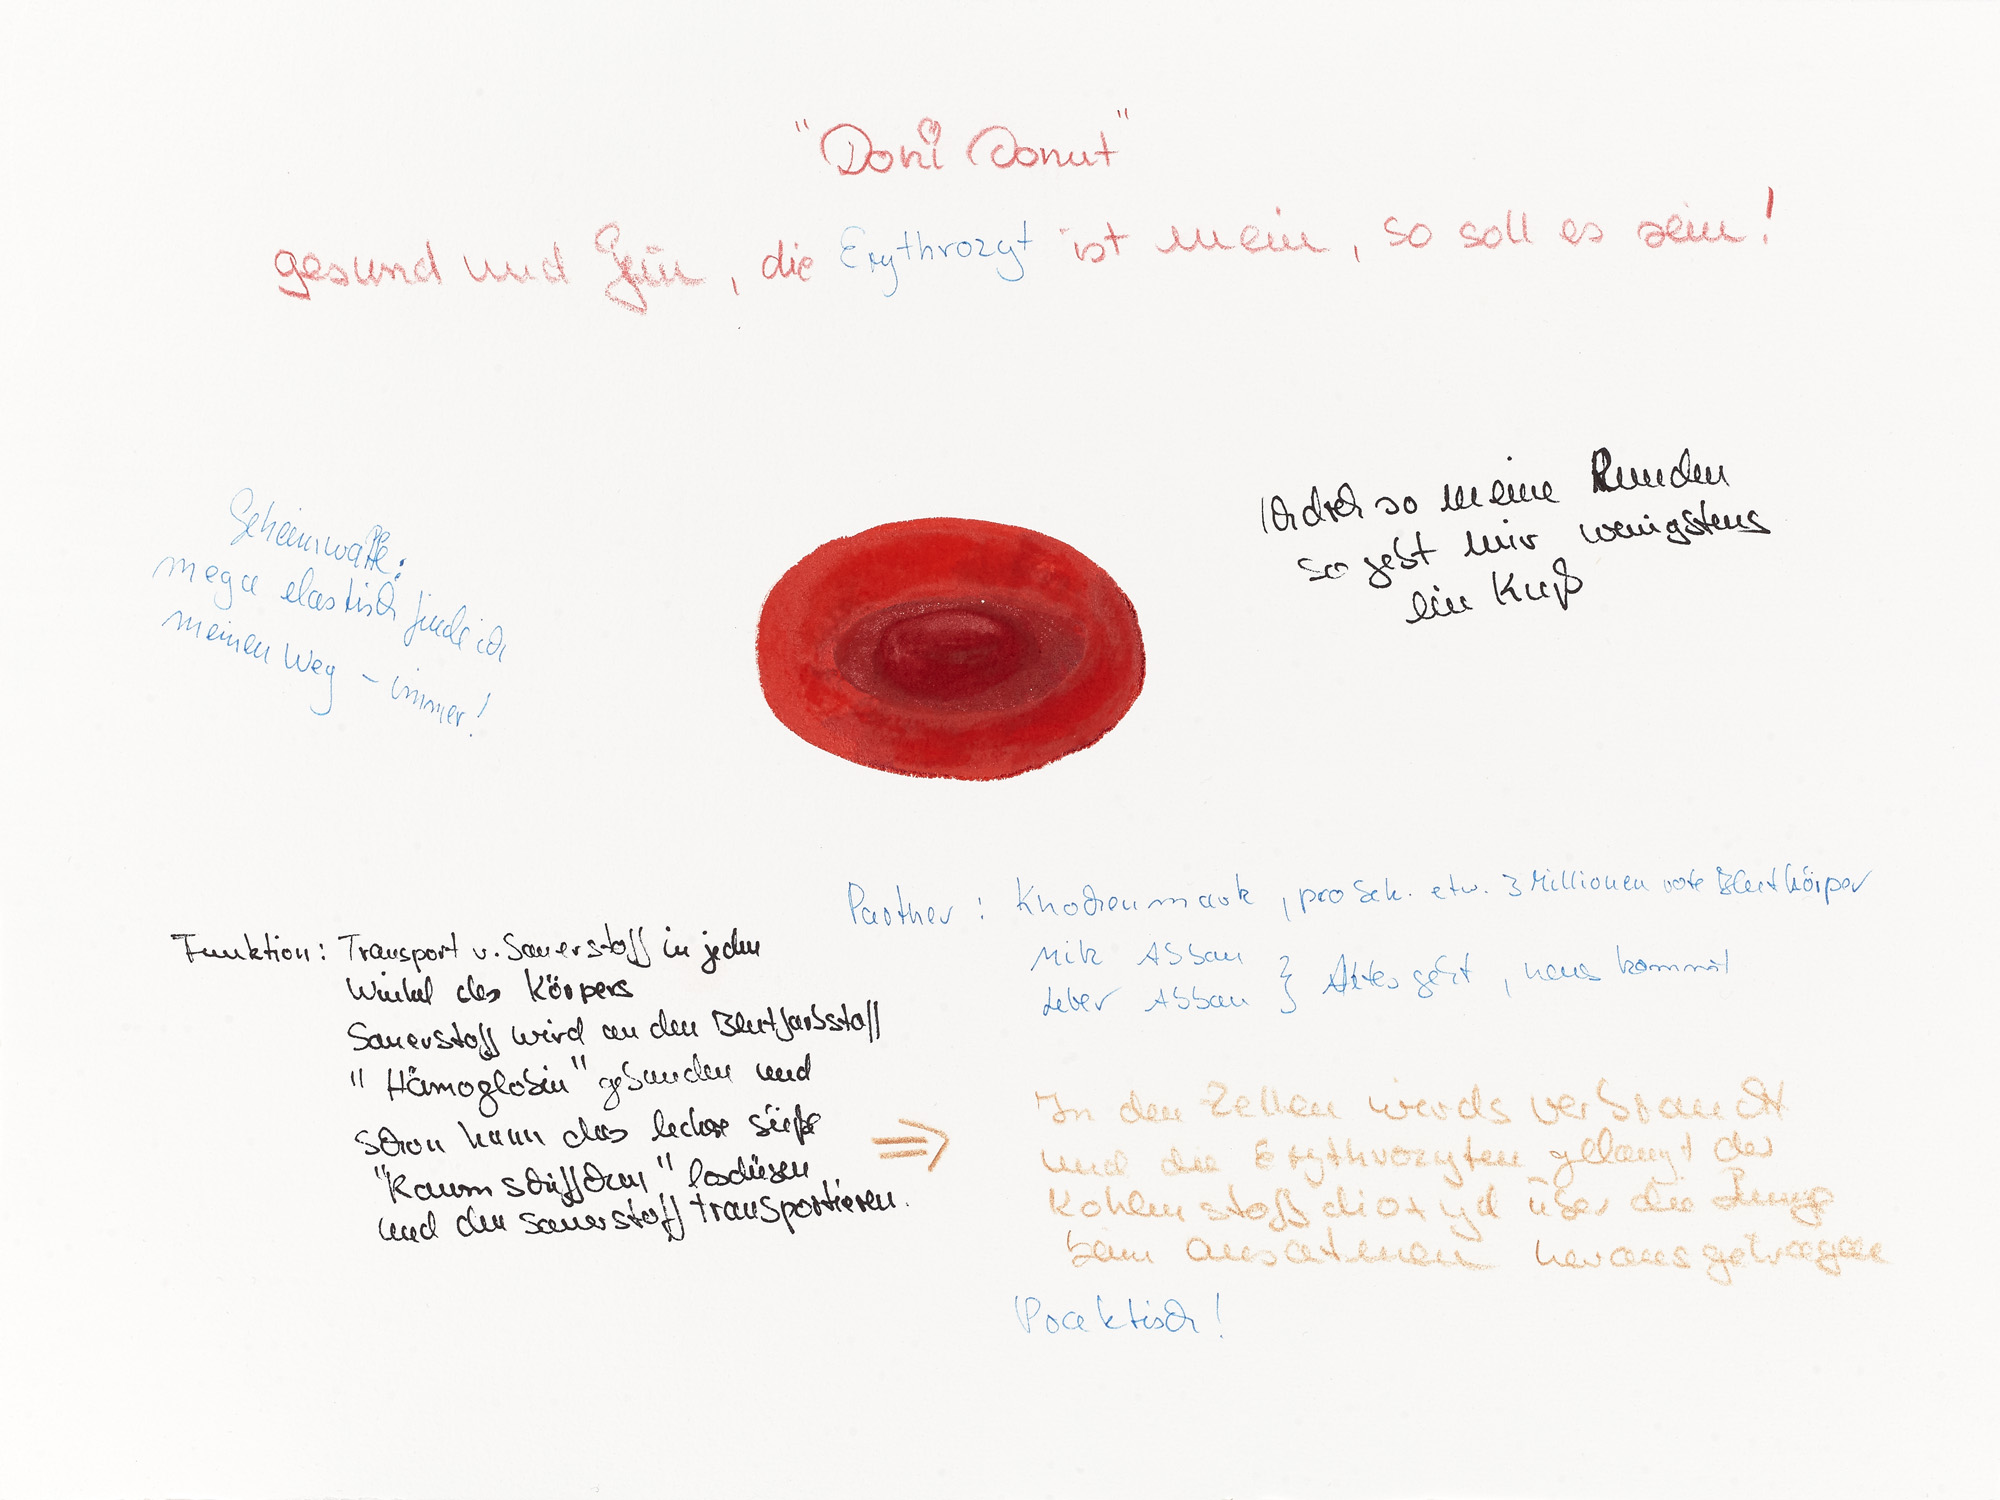 "Doni Donut"
gesund und fein, die Erythrozyt ist mein, so soll es sein!
Geheimwaffe:
mega elastisch finde ich
meinen Weg - immer!
Ich dreh so meine Runden
so gebt mir wenigstens
ein Kuß
Partner: Knochenmark, pro Sek. etw. 3 Millionen rote Blutkörper
Milz Abbau
Leber Abbau } Altes geht, neues kommt
Funktion: Transport v. Sauerstoff in jeden
Winkel des Körpers
Sauerstoff wird an den Blutfarbstoff
"Hämoglobin" gebunden und
schon kann das leckre süße
"Raumschiffchen" losdüsen
und den Sauerstoff transportieren.
⇒ In den Zellen wirds verbraucht
und die Erythrozyten gelangt das
Kohlenstoffdioxyd über die Lunge
beim ausatmen herausgetragen
Praktisch!